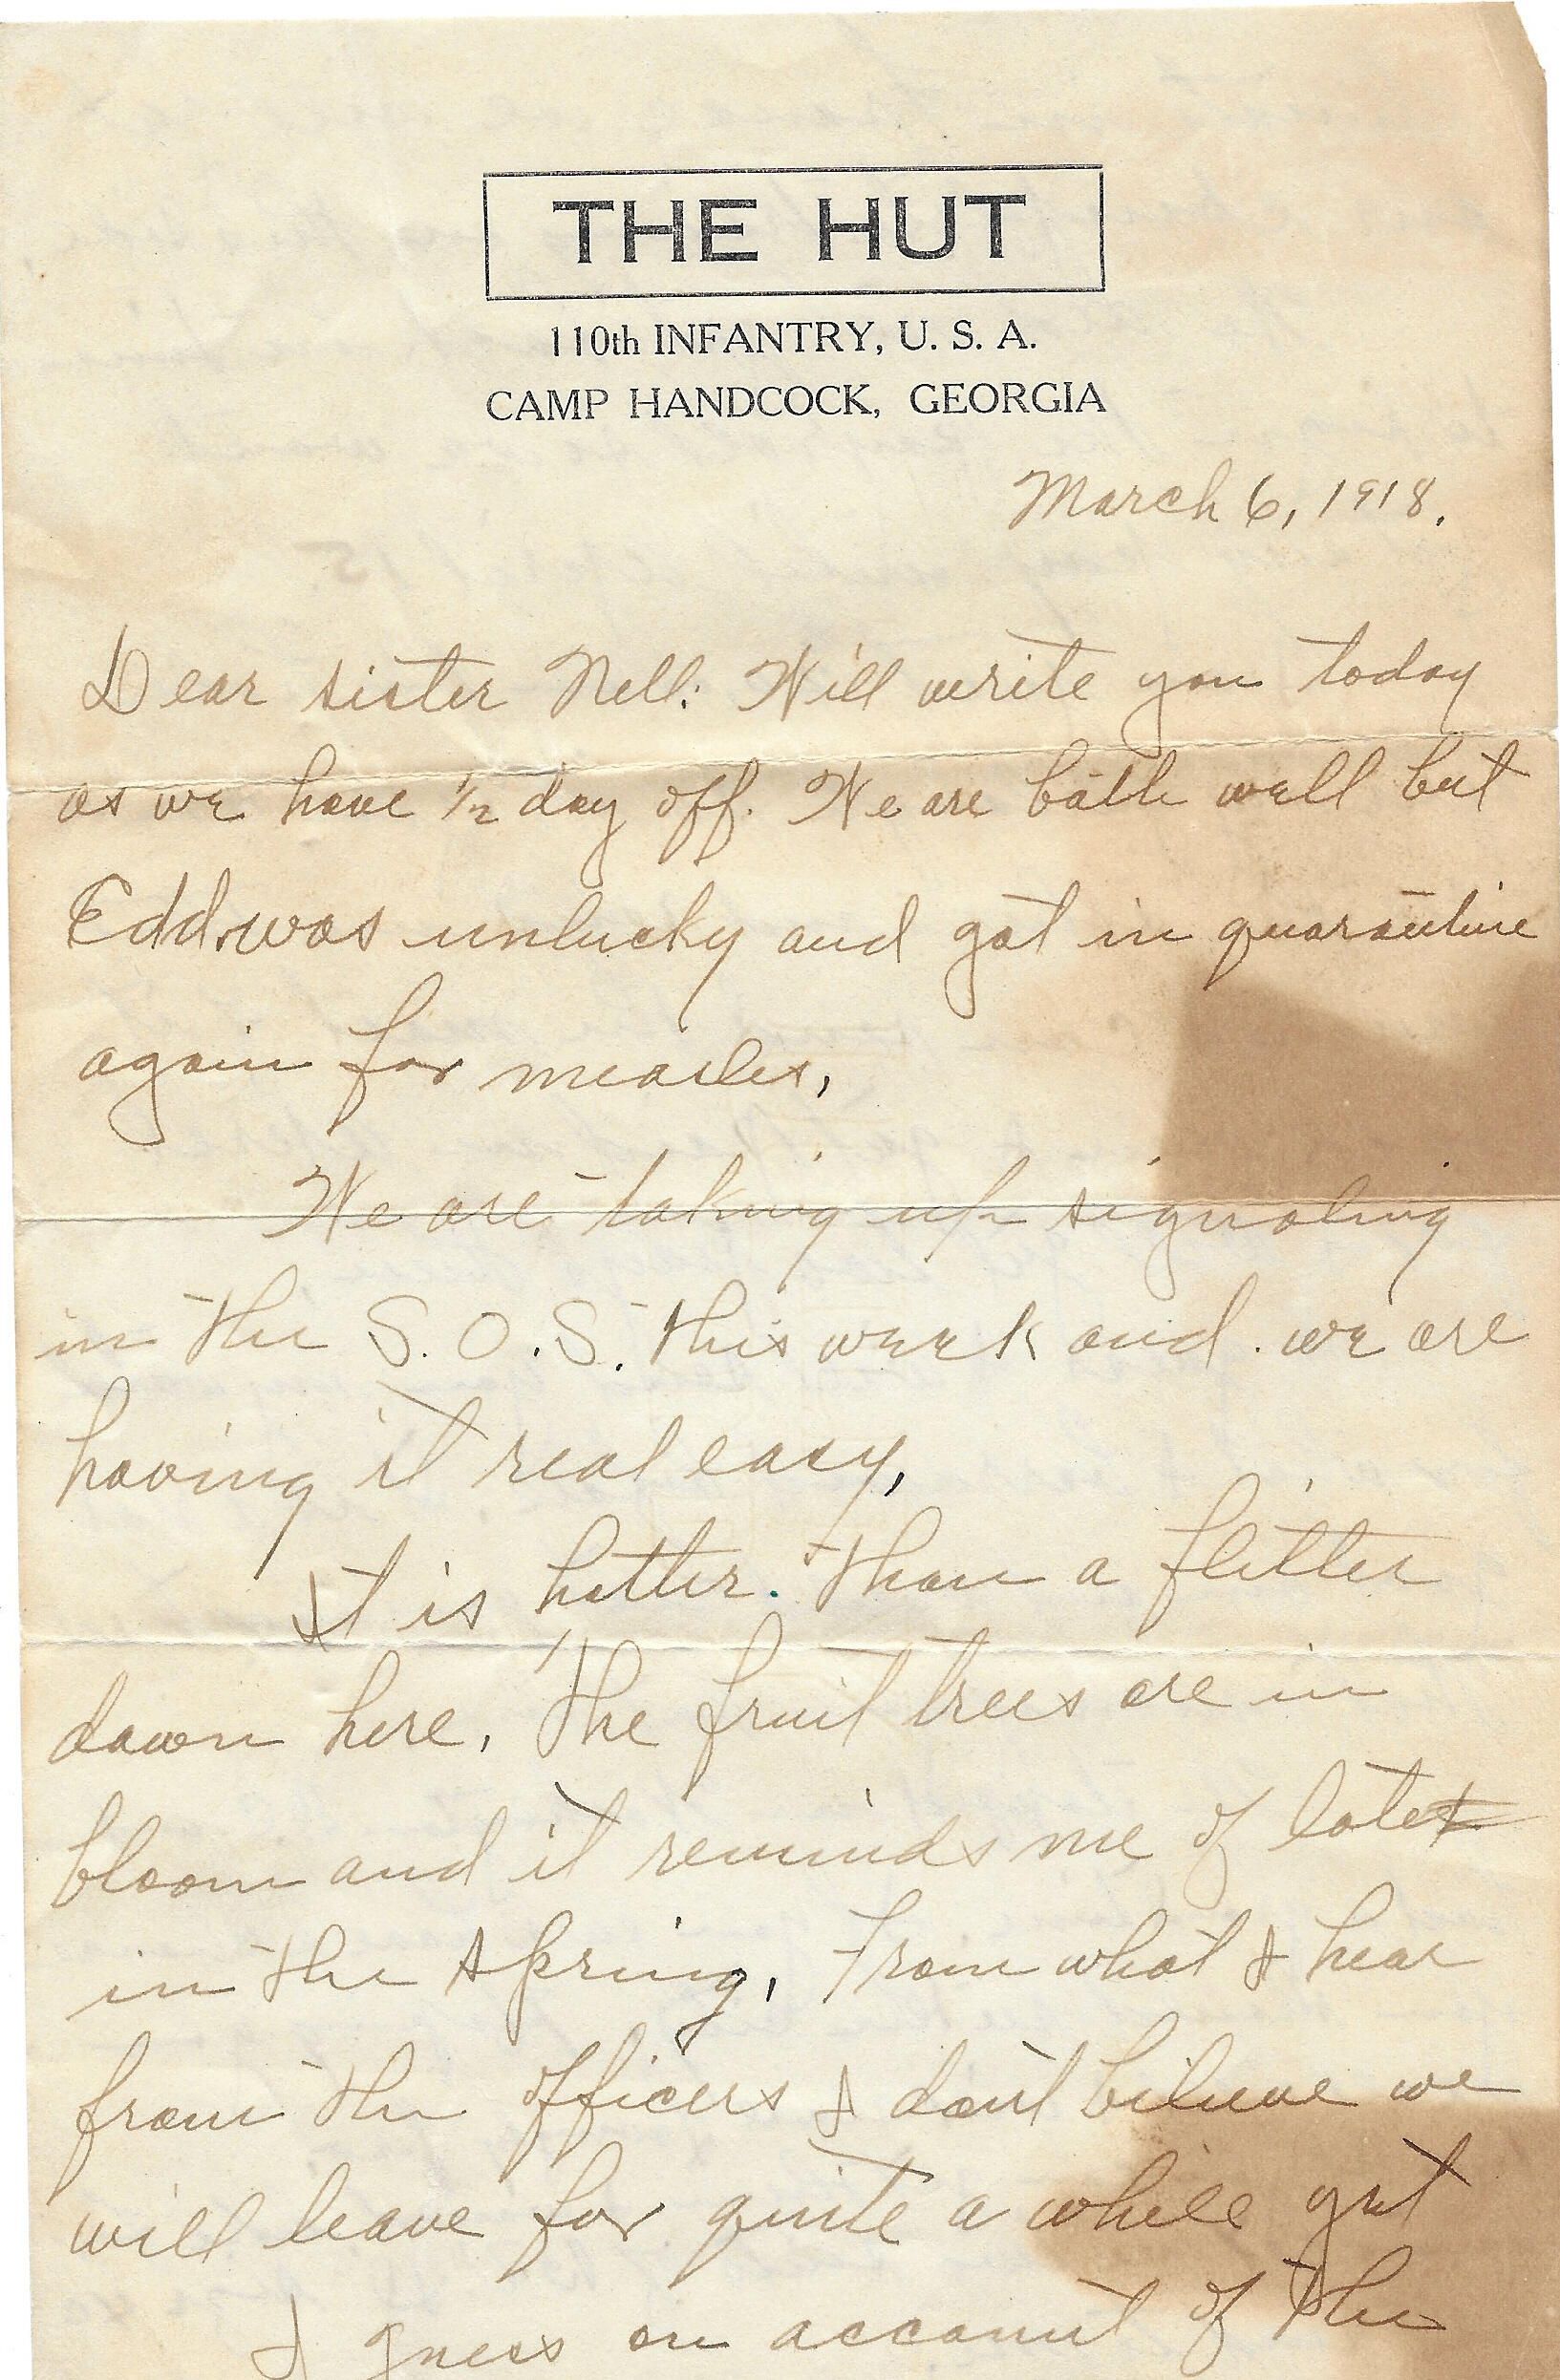 THE HUT
110th INFANTRY, U. S. A.
CAMP HANDCOCK, GEORGIA
March 6, 1918.
Dear sister Nell: Will write you today
as we have ½ day off. We are both well but
Edd. was unlucky and got in quarantine
again for measles,
We are taking up signaling
in the S. O. S. this week and . we are
having it real easy,
It is hotter. than a flitter
down here, The fruit trees are in
bloom and it reminds me of late
in the spring, From what I hear
from the officers I don't beleive we
will leave for quite a while yet
I guess on account of the